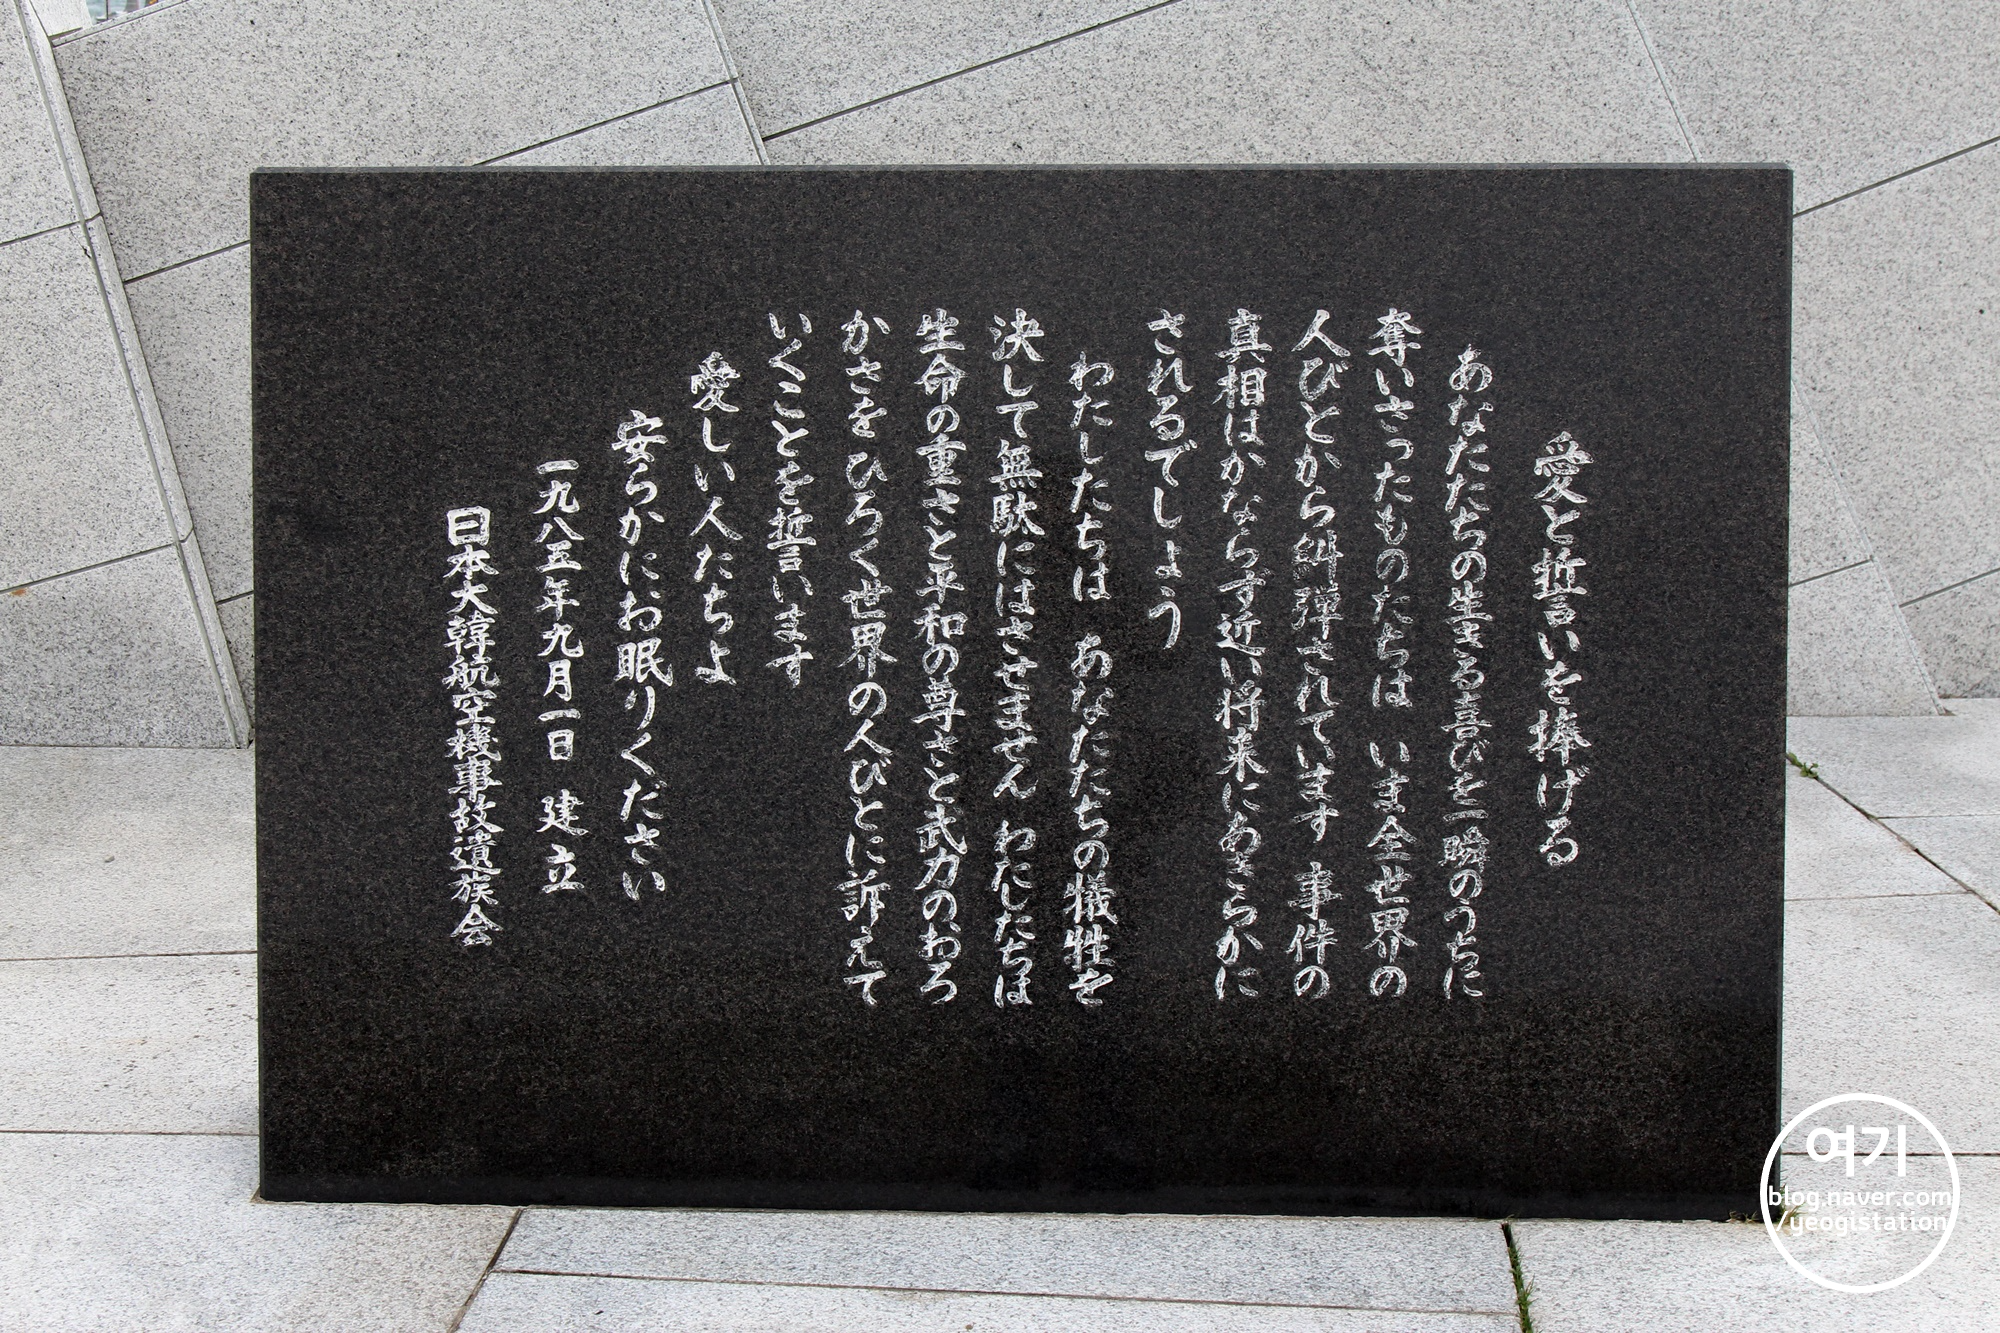 愛と誓いを捧げる
あなたたちの生きる喜びを一瞬のうちに
奪いさったものたちは　いま全世界の
人びとから糾弾されています　事件の
真相はかならず近い将来にあきらかに
されるでしょう
わたしたちは　あなたたちの犠牲を
決して無駄にはさせません　わたしたちは
生命の重さと平和の尊さと武力のおろ
かさを　ひろく世界の人びとに訴えて
いくことを誓います
愛しい人たちよ
安らかにお眠りください
一九八五年九月一日　建立
日本大韓航空機事故遺族会
여기
blog.naver.com
/yeogistation